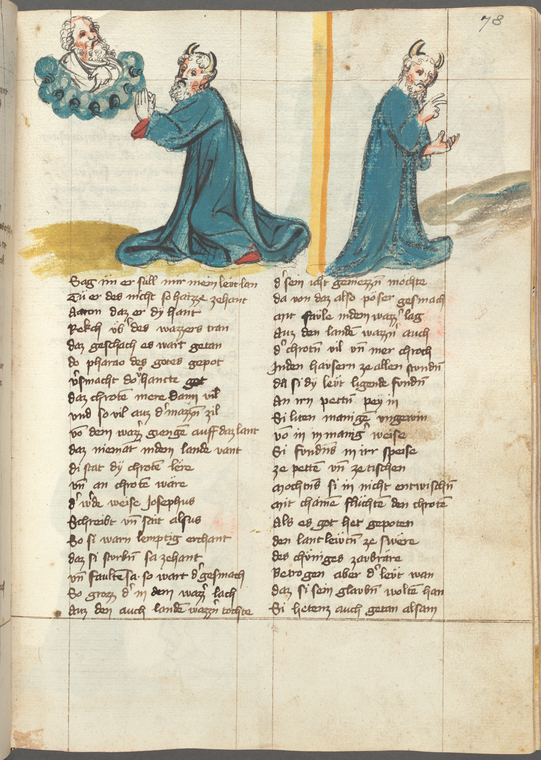 78
Sag im er sull mir mein levt lan
Tu er des nicht so haizze zehant
Aaron daz er dy hant
Rekch vber des wazzers tran
daz geschach es wart getan
do pharao des gotes gepot
versmacht do hancte got
daz chrote mere dann vil
vnd so vil auz der mazzn zil
von dem wazzer gienge auff daz lant
daz niemat in dem lande vant
di stat dy chrote lere
vnd an chrote ware
der werde weise Josephus
Schreibt vnd sait alsus
So si warn lemptig erchant
daz si sturbn sa zehant
vnd faultn sa so wart der gesmach
So grozz der in dem wazzer lach
Auz den auch lande wazzern tochte
der sein icht geniezzn mochte
da von daz also poser gesmach
mit fawle in dem wazzer lag
Auz dem lande wazzn auch
der chrotn vil vnd mer chroch
In den hausern ze allen stunden
da si dy levt ligende fundn
An irn pettn pey in
Si liten manigen ungewin
von in in maniger weise
Si fundns in irr speise
ze pette vnd ze tischen
mochtens si in nicht entwischn
mit chainer fluchte den chrote
Als es got het gepoten
den lantlevten ze swere
des chuniges zavbrare
Betrogen aber der levt wan
daz si sein glavbn wolte han
Si hetenz auch getan alsam